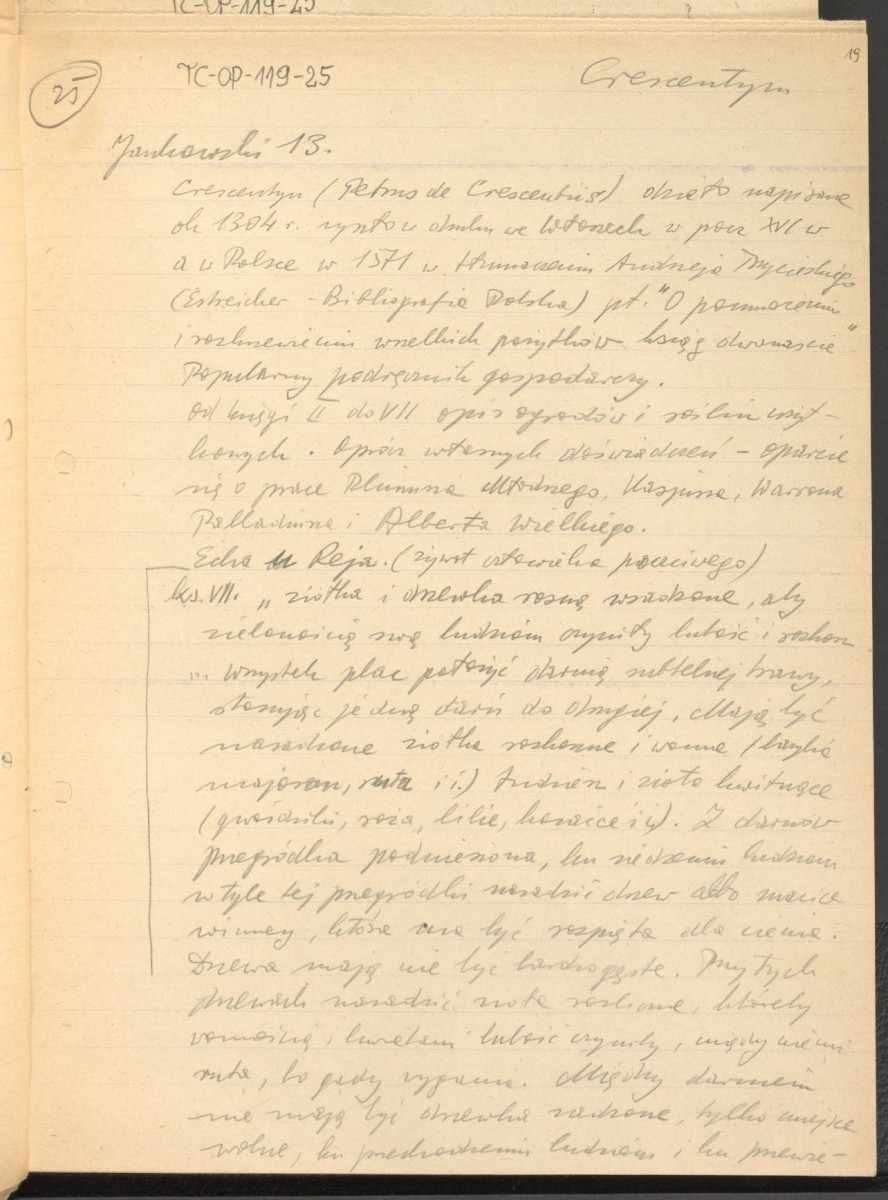 TC-OP-119-25
19
25
TC-OP-119-25
Crescentyn
Jankowski 13.
Crescentyn (Petrus de Crescentiis) dzieło napisane
ok 1304 r. wyszło w druku we Włoszech w pocz XVI w
a w Polsce w 1571 w tłumaczeniu Andrzeja Trzycieskiego
(Estreicher - Bibliografia Polska) pt. "O pomnożeniu
i rozkrzewieniu wszelkich pożytków ksiąg dwanaście"
Popularny podręcznik gospodarczy.
od księgi II do VII opis ogrodów i roślin użyt-
kowych. Oprócz własnych doświadczeń - oparcie
się o prace Pliniusza Młodszego, Kasjusza, Warrona
Palladiusza i Alberta Wielkiego.
Echa u Reja. (żywot człowieka poczciwego)
ks. VII. „ziółka i drzewka rosną wsadzone, aby
zielonością swą ludziom czyniły lubość i rozkosz
„. wszystek plac położyć darnią subtelnej trawy,
stosując jedną darń do drugiej. Mają być
nasadzone ziółka rozkoszne i wonne (bazylia
majoran, ruta i i.) Tudzież i zioła kwitnące
(gwoździki, róża, lilie, kosaćce i i.). Z darnów
przegródka podniesiona, ku siedzeniu ludziom
w tyle tej przegródki nasadzić drzew albo macice
winnej, która ma być rozpięta dla cienia.
Drzewa mają nie być bardzo gęste. Przy tych
drzewach nasadzić zioła rozliczne, któreby
wonnością i kwiatami lubość czyniły, między niemi
ruta, bo gady wygania. Między darniem
nie mają być drzewka sadzone, tylko miejsce
wolne, ku przechodzeniu ludziom i ku przewie-